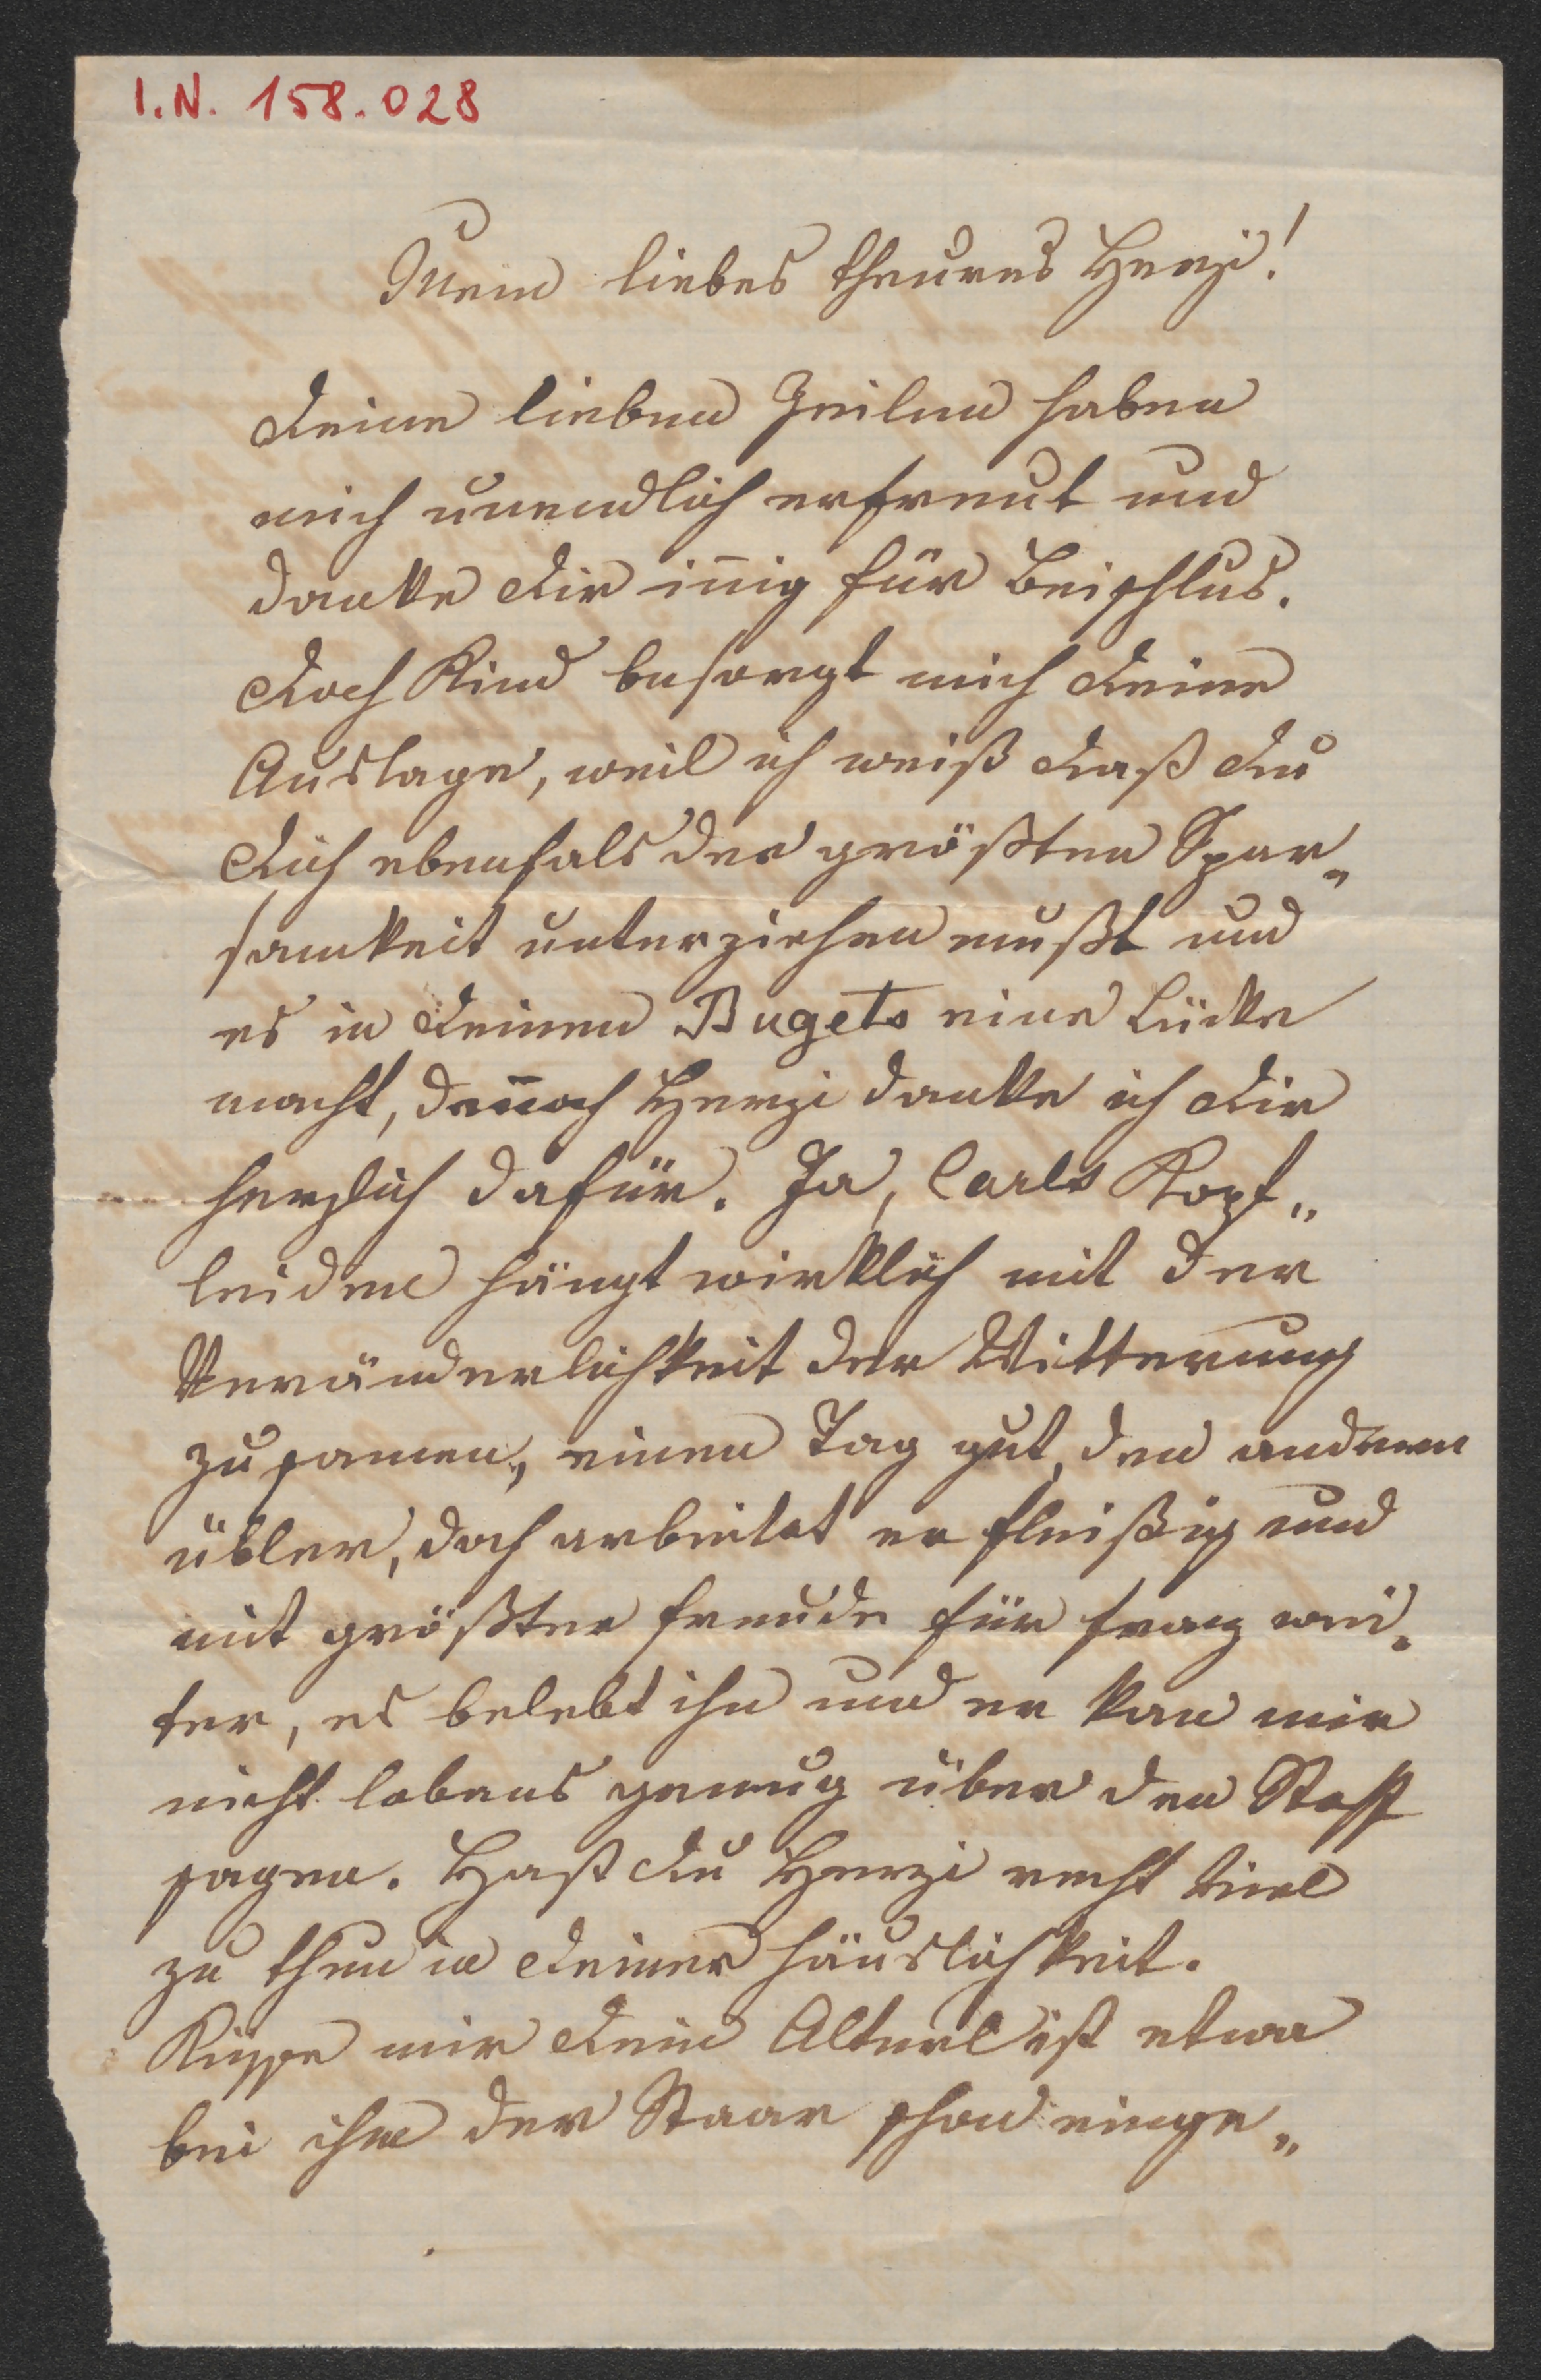 I.N. 158.028
Mein liebes theures Herzi!
Deine lieben Zeilen haben
mich unendlich erfreut und
danke Dir in̅ig für Beischlus.
Doch Kind besorgt mich Deine
Auslage, weil ich weiß daß Du
Dich ebenfals der größten Spar„
samkeit unterziehen mußt und
es in Deinen Bugets eine Lücke
macht, den̅och Herzi danke ich Dir
herzlich dafür. Ja, Carls Kopf„
leiden hängt wirklich mit der
Veränderlichkeit der Witterung
zusamen, einen Tag gut, den anderen
übler, doch arbeitet er fleißig und
mit größter Freude für Franz wei„
ter, es belebt ihn und er kan mir
nicht lobens genug über den Stoff
sagen. Hast Du Herzi recht viel
zu thun in Deiner Häuslichkeit.
Küsse mir Dein Alterl ist etwa
bei ihm der Staar schon einge„